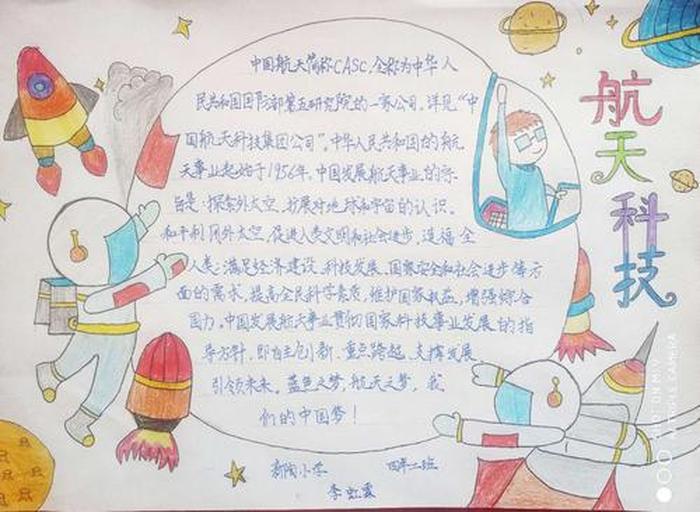 航天科技
中国航天简称CASC,全称为中华人
民共和国国防部第五研究院的一家公司。详见“中
国航天科技集团公司”。中华人民共和国的航
天事业起始于1956年。中国发展航天事业的宗
旨是:探索外太空,扩展对地球和宇宙的认识。
和平利用外太空,促进人类文明和社会进步,造福全
人类;满足经济建设、科技发展、国家安全和社会进步等方
面的需求,提高全民科学素质,维护国家权益,增强综合
国力。中国发展航天事业贯彻国家科技事业发展的指
导方针,即自主创新、重点跨越、支撑发展、
引领未来。蓝色之梦,航天之梦,我
们的中国梦!
小学 四年二班
李虹